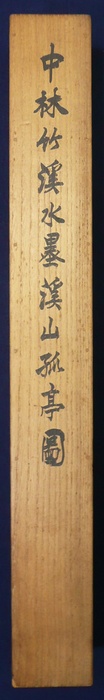 中林竹溪水墨溪山孤亭圖